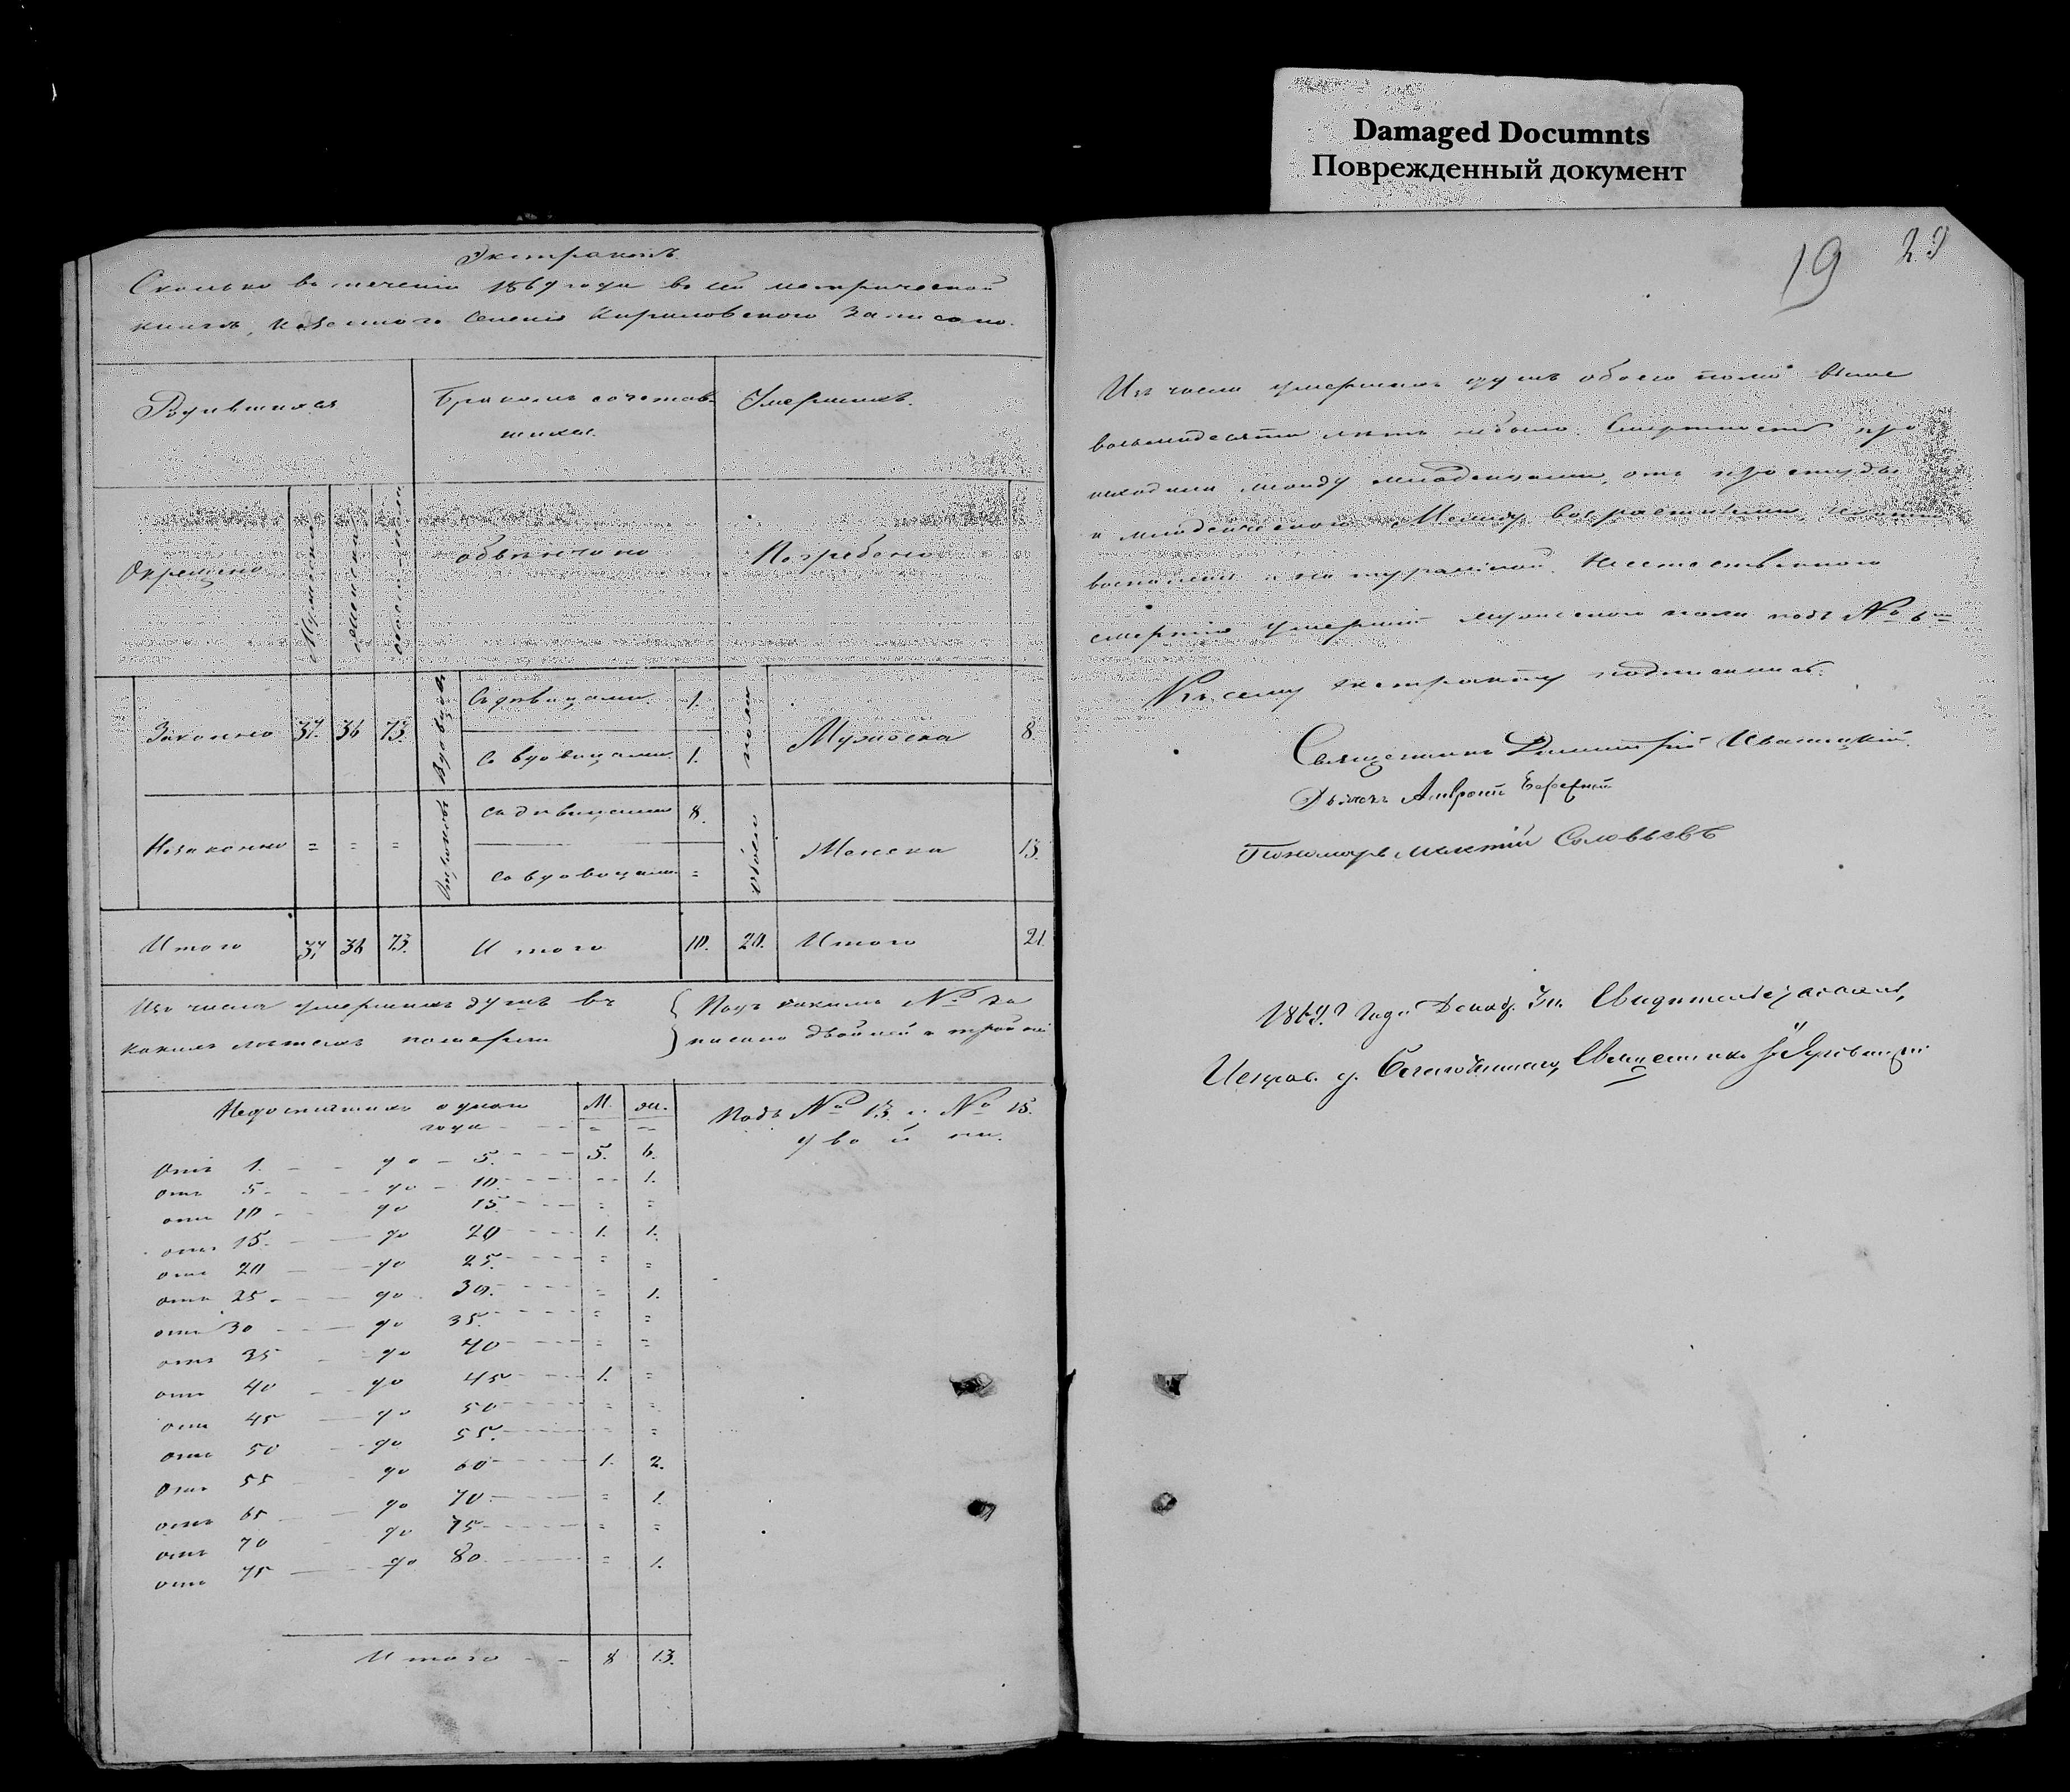 Damaged Documnts
Поврежденный документ
Экстрактъ.
Сколько въ теченіи 1869 года въ сей метрической
книгѣ, казеннаго селенія Кириловскаго записано.
Родившихся
Бракомъ сочетав-
шихся.
Умершихъ.
Окрещено
Мужеска
Женска
обоего пола
обвѣнчано
Погребено
Законно 37. 36 73.
Вдовцовъ
Съ дѣвицами. 1.
Со вдовицами. 1.
обоего пола
Мужеска 8.
Незаконно = = =
съ дѣвицами 8.
Со вдовицами =
Женска 13.
Итого 37 36 73. Итого 10. 20. Итого 21.
Изъ числа умершихъ душъ въ
какихъ лѣтахъ померли
Подъ какимъ № за
писано двойней и тройней
Недостигшихъ одного М. ж.
года = =
Подъ № 13. и № 15.
двойни.
Отъ 1. до 5. 5. 6.
отъ 5 до 10. 1.
отъ 10 до 15 = =
отъ 15. до 20 1. 1.
отъ 20 до 25. = =
отъ 25 до 30. = 1.
отъ 30 до 35. = =
отъ 35 до 40 = =
отъ 40 до 45 1. =
отъ 45 до 50 = =
отъ 50 до 55. =
отъ 55 до 60 1. 2.
отъ 65 до 70 = 1.
отъ 70 до 75 = =
отъ 75 до 80 = 1.
Итого 8 13.
19
Изъ числа умершихъ душъ обоего пола выше
восьмидесяти лѣтъ небыло. Смертность про
исходила между младенцами, отъ простуды
и младенческаго. Между возрастными,
воспаленія и натуральной. Неестественною
смертію умершій мужескаго пола подъ № 6
Къ сему экстракту подписались:
Священникъ Димитрій Иваницкій.
Дьячокъ
Пономарь Соловьевъ
1869. года Свидѣтельствовалъ,
Исправ. д. Благочиннаго, Священникъ